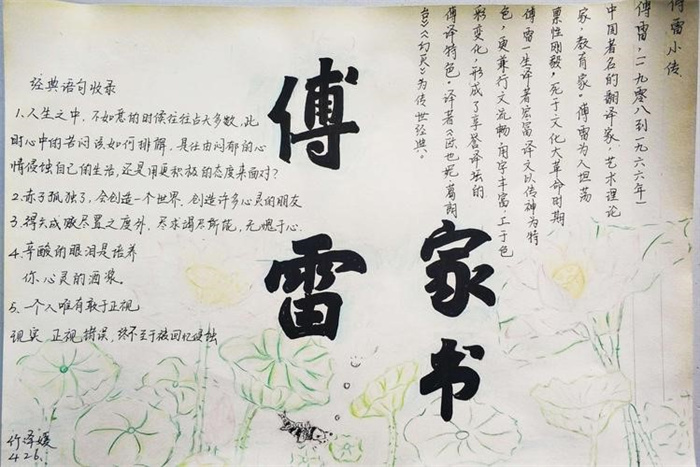 傅雷
家书
傅雷小传
傅雷,(一九零八到一九六六年)
中国著名的翻译家.艺术理论
家.教育家.傅雷为人坦荡
禀性刚毅,死于文化大革命时期.
傅雷一生译著宏富,译文以传神为特
色,更兼行文流畅.用字丰富.工于色
彩变化,形成了享誉译坛的
傅译特色.译著《欧也妮.葛朗
台》《幻灭》为传世经典。
经典语句收录
1.人生之中,不如意的时候往往占大多数.此
时心中的苦闷该如何排解,是任由闷郁的心
情侵蚀自己的生活,还是用更积极的态度来面对?
2.赤子孤独了,会创造一个世界,创造许多心灵的朋友
3.得失成败尽置之度外,尽求竭尽所能,无愧于心.
4.辛酸的眼泪是培养
你心灵的酒浆。
5.一个人唯有敢于正视
现实 正视错误,终不至于被回忆侵蚀
竹泽媛
426.